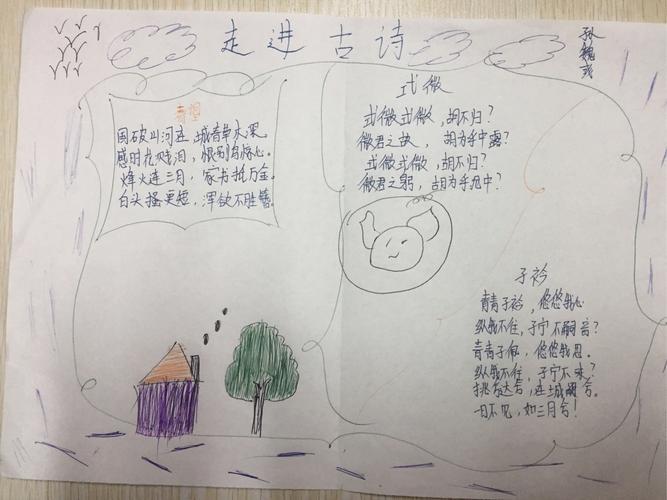 走进古诗
孙魏
春望
国破山河在，城春草木深。
感时花溅泪，恨别鸟惊心。
烽火连三月，家书抵万金。
白头搔更短，浑欲不胜簪。
式微
式微式微，胡不归？
微君之故，胡为乎中露？
式微式微，胡不归？
微君之躬，胡为乎泥中？
子衿
青青子衿，悠悠我心
纵我不往，子宁不嗣音？
青青子佩，悠悠我思。
纵我不往，子宁不来？
挑兮达兮，在城阙兮。
一日不见，如三月兮！